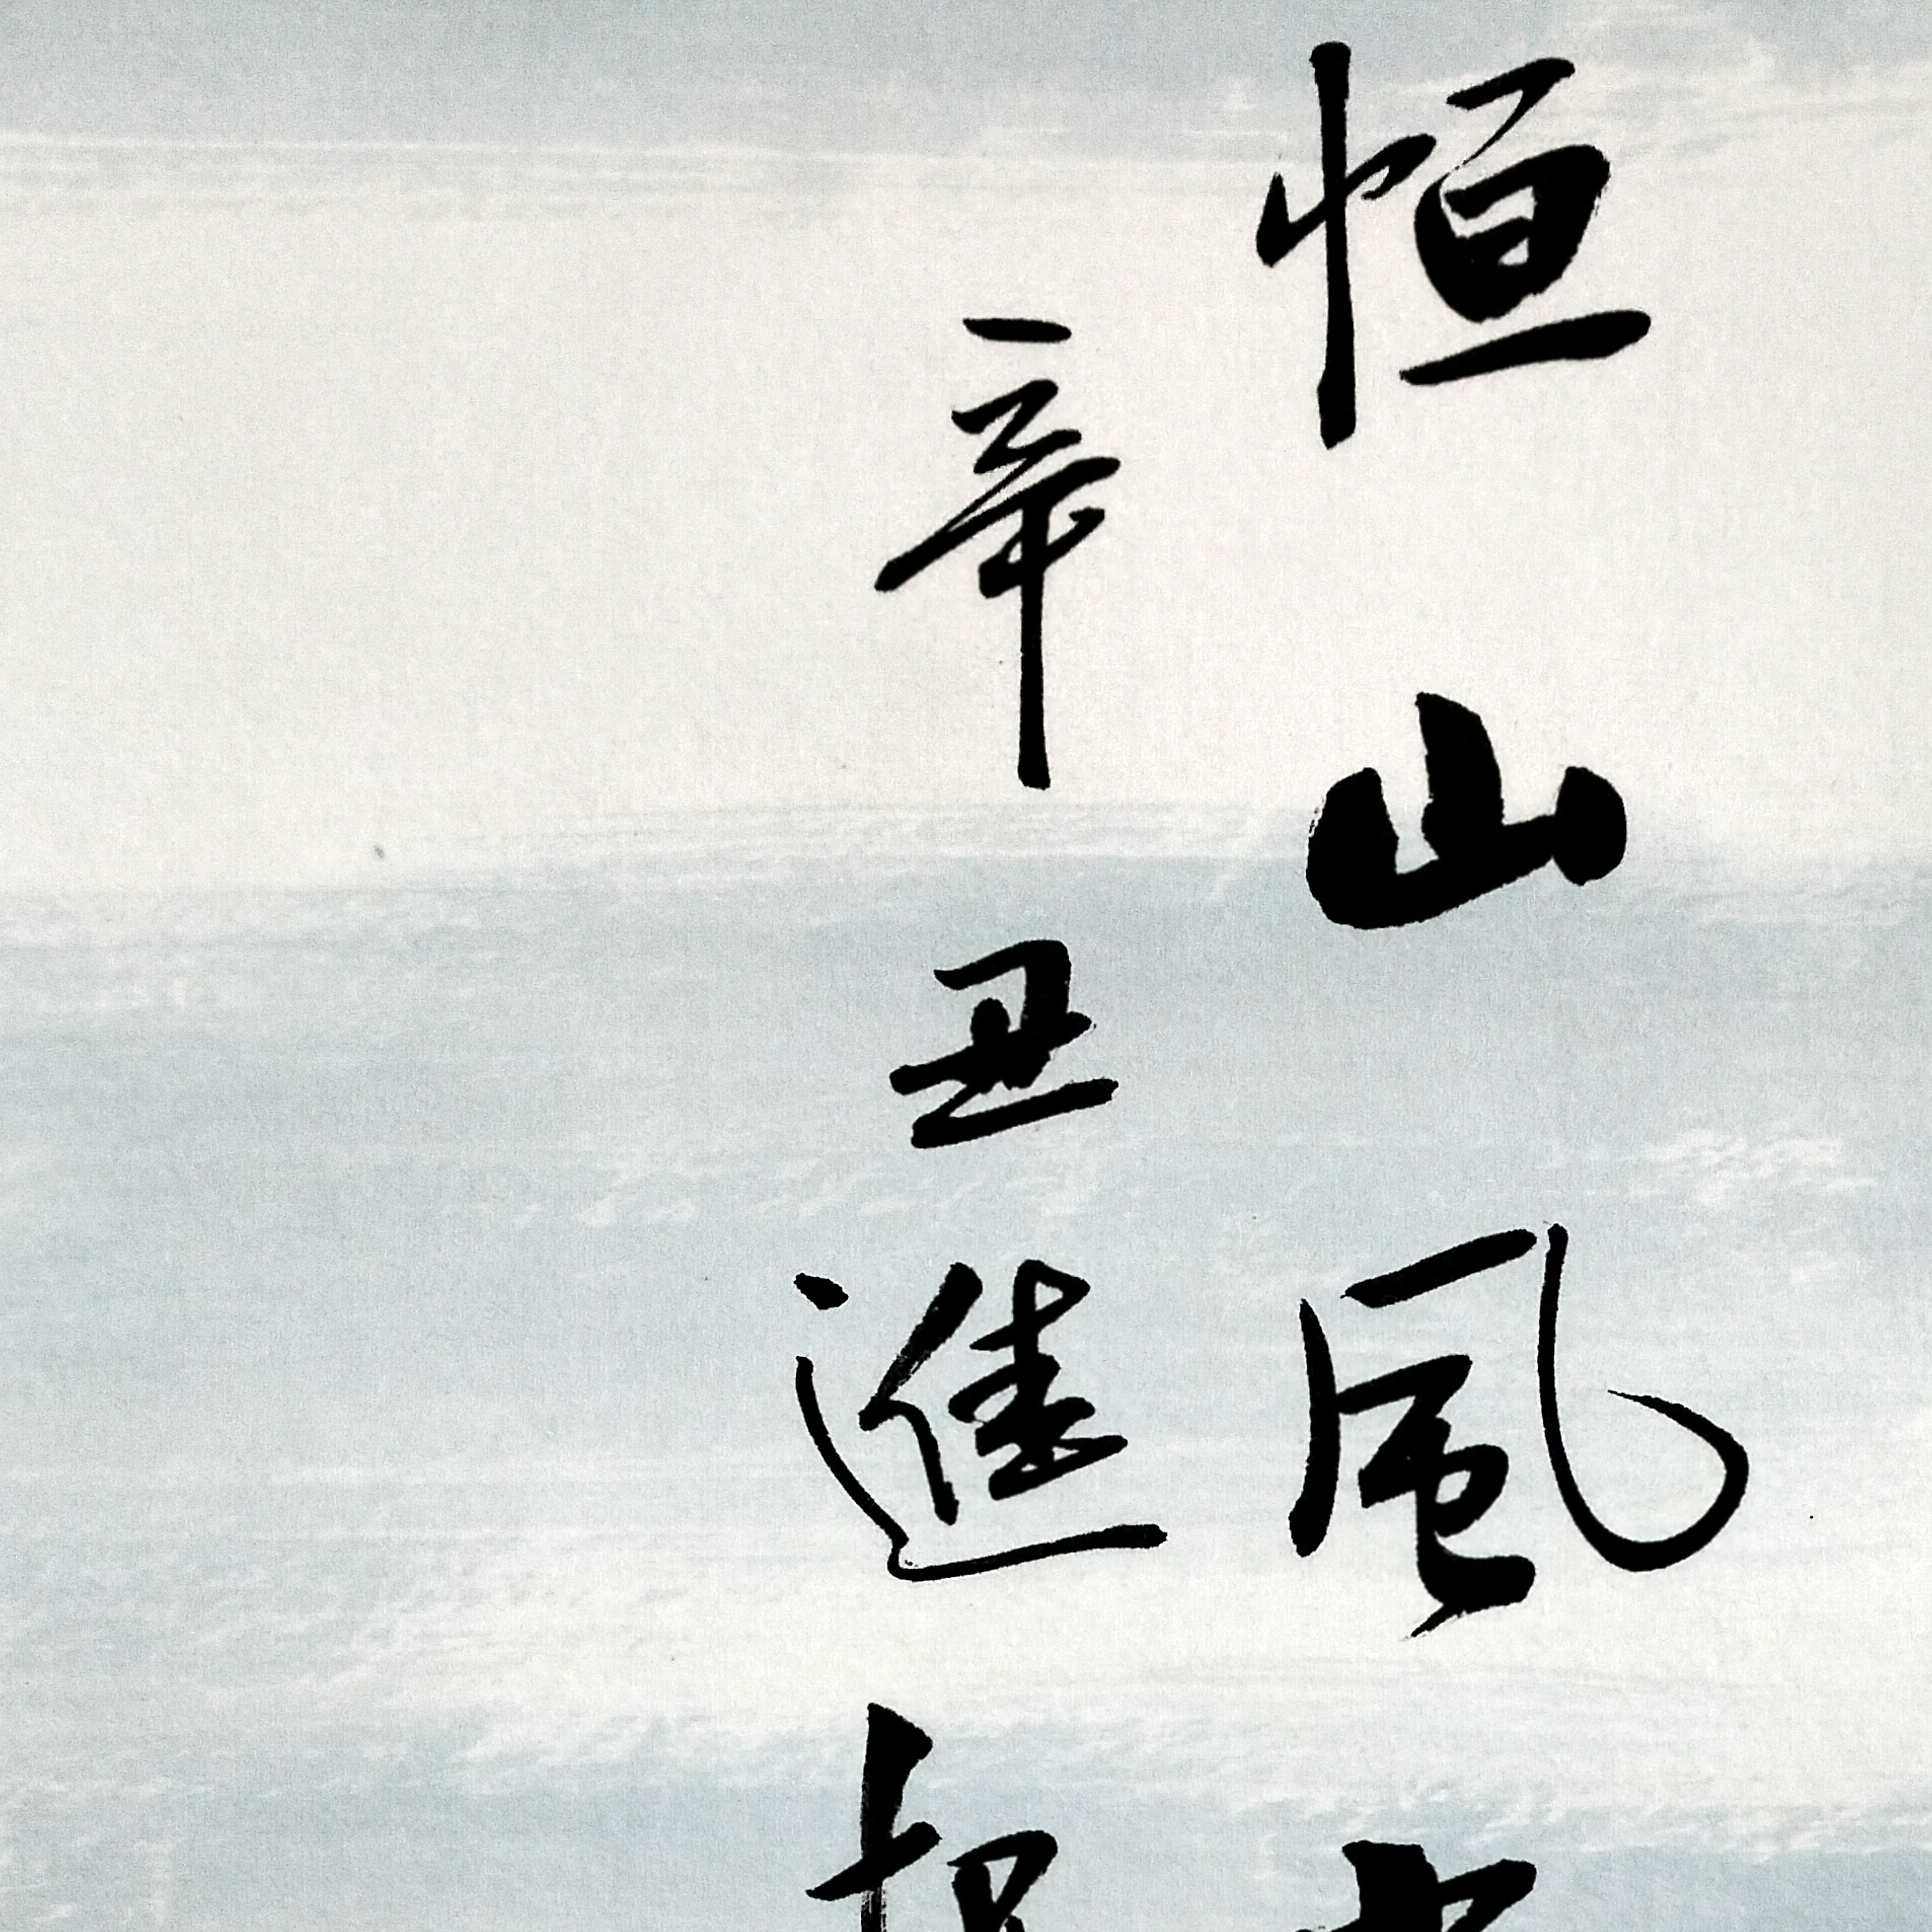 恒山風
辛丑進